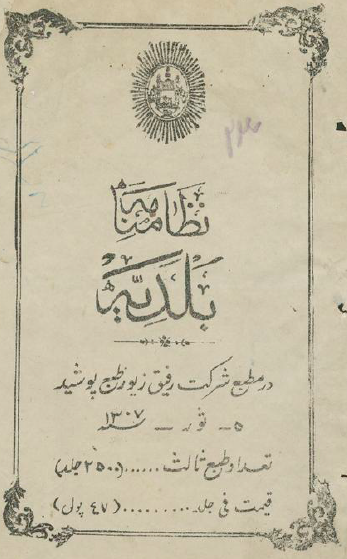 نظامنامه
بلدیه
در مطبع شرکت رفیق زیور طبع پوشید
۵ - ثور - سنه ۱۳۰۷
تعداد طبع ثالث ...... (۲۵۰۰ جلد)
قیمت فی جلد .......... (۴۷ پول)